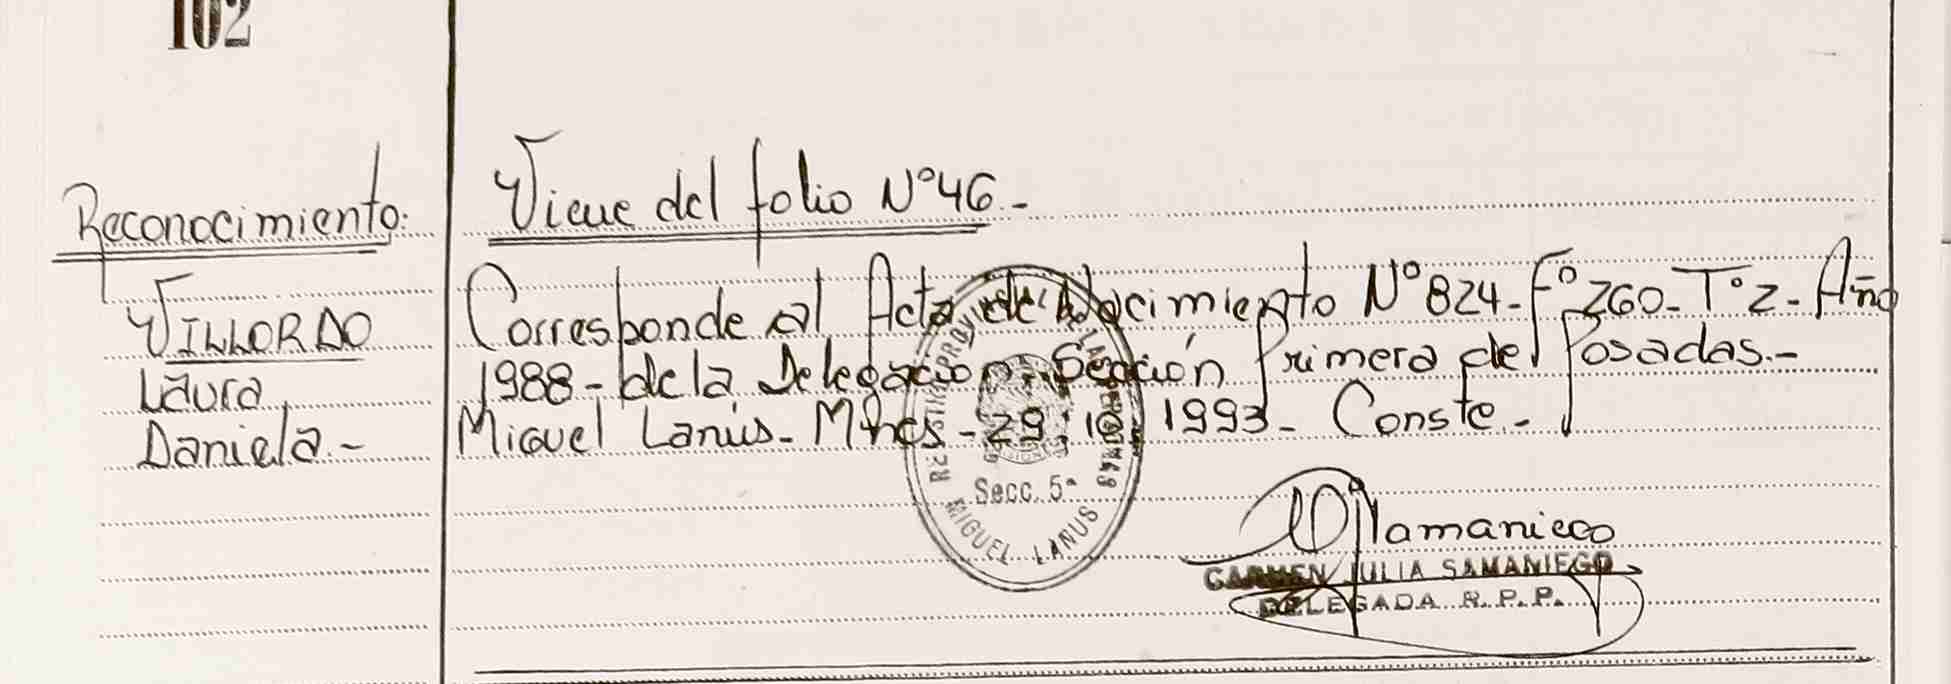 102
Reconocimiento:
VILLORDO
Laura
Daniela.-
Viene del folio N°46.-
Corresponde al Acta de Nacimiento N°824-F°260-T°2-Año
1988- de la Delegación Sección Primera de Posadas.-
Miguel Lanús- Mnes-29-10-1993- Conste.-
Secc. 5ª
MIGUEL LANUS
CARMEN JULIA SAMANIEGO
DELEGADA R.P.P.